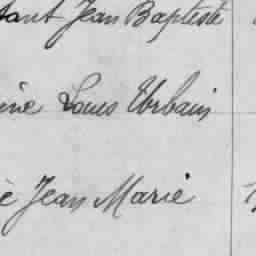 tant Jean Baptiste
ine Louis Urbain
è Jean Marie